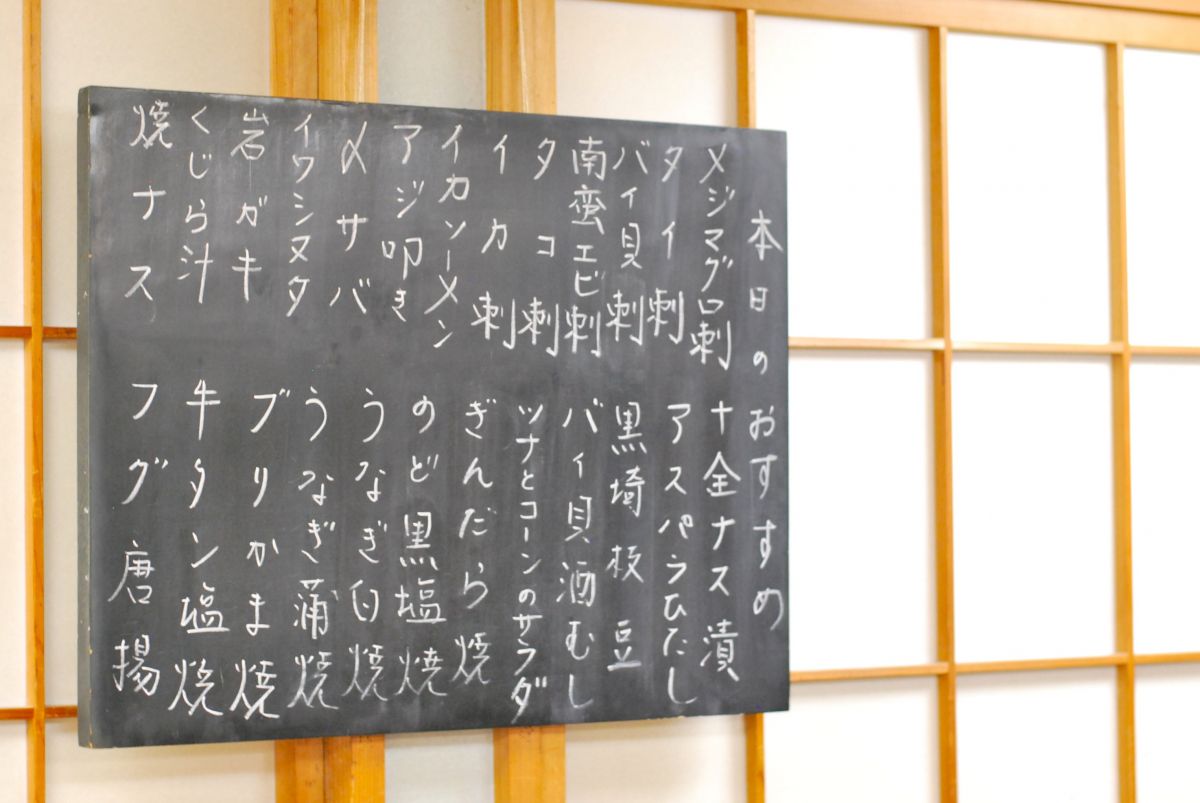 本日のおすすめ
メジマグロ刺
タイ刺
バイ貝刺
南蛮エビ刺
タコ刺
イカ刺
イカソーメン
アジ叩き
〆サバ
イワシヌタ
岩ガキ
くじら汁
焼ナス
十全ナス漬
アスパラひたし
黒埼枝豆
バイ貝酒むし
ツナとコーンのサラダ
ぎんだら焼
のど黒塩焼
うなぎ白焼
うなぎ蒲焼
ブリかま焼
牛タン塩焼
フグ唐揚